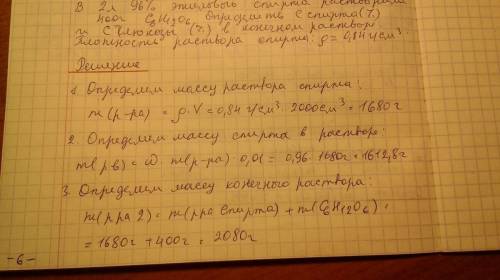 В 2л 96% этилового спирта растворили
400г C6H12O6. Определить C спирта (%)
и C глюкозы (%) в конечном растворе
Плотность раствора спирта: ρ = 0,84 г/см³.
Решение
1. Определяем массу раствора спирта:
m(р-ра) = ρ·V = 0,84 г/см³ · 2000см³ = 1680г
2. Определяем массу спирта в растворе:
m(рв) = ω · m(р-ра) · 0,01 = 0,96 · 1680г = 1612,8г
3. Определяем массу конечного раствора:
m(рра 2) = m(рра спирта) + m(C6H12O6) =
= 1680г + 400г = 2080г
-6-